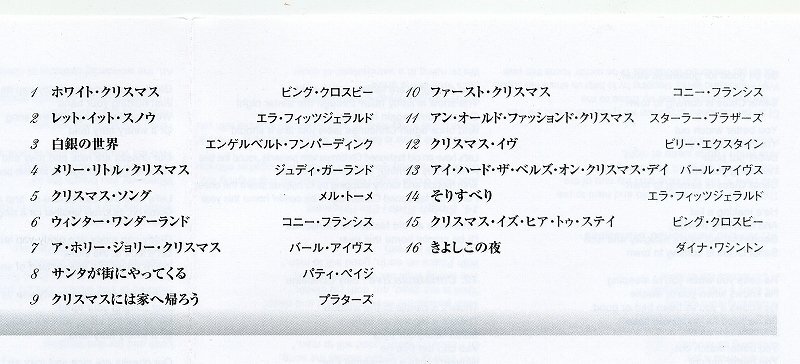 1 ホワイト・クリスマス ビング・クロスビー
2 レット・イット・スノウ エラ・フィッツジェラルド
3 白銀の世界 エンゲルベルト・フンパーディンク
4 メリー・リトル・クリスマス ジュディ・ガーランド
5 クリスマス・ソング メル・トーメ
6 ウィンター・ワンダーランド コニー・フランシス
7 ア・ホリー・ジョリー・クリスマス バール・アイヴス
8 サンタが街にやってくる パティ・ペイジ
9 クリスマスには家へ帰ろう プラターズ
10 ファースト・クリスマス コニー・フランシス
11 アン・オールド・ファッションド・クリスマス スターラー・ブラザーズ
12 クリスマス・イヴ ビリー・エクスタイン
13 アイ・ハード・ザ・ベルズ・オン・クリスマス・デイ バール・アイヴス
14 そりすべり エラ・フィッツジェラルド
15 クリスマス・イズ・ヒア・トゥ・ステイ ビング・クロスビー
16 きよしこの夜 ダイナ・ワシントン